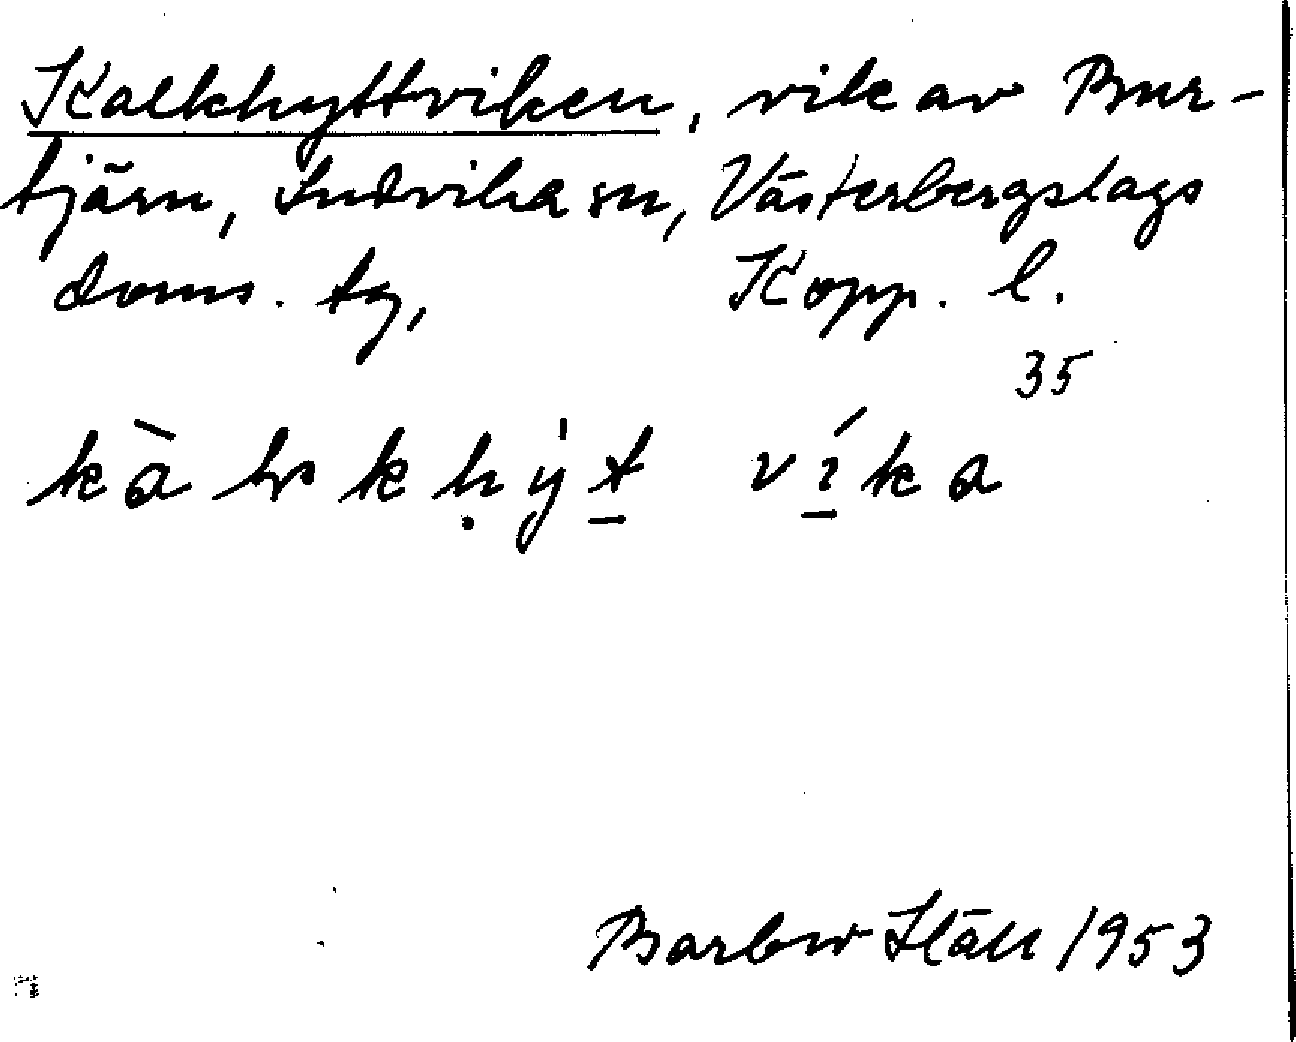 Kalkhyttviken, vik av Bur-
tjärn, Ludvika sn, Västerbergslags
doms. tg, Kopp. l.
35
víka
Barbro 1953